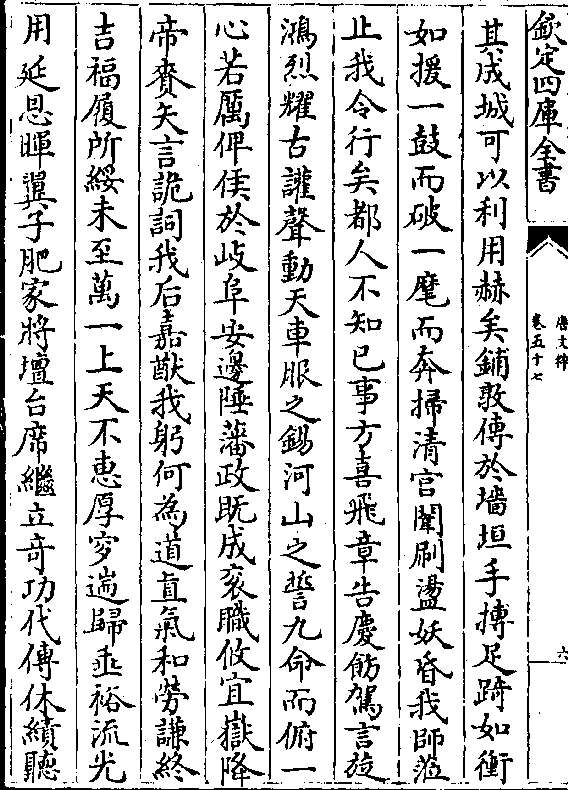 欽定四庫全書
唐文粹
卷五十七
六
其成城可以利用赫矣鋪敦傅於墻垣手摶足踦如衝
如援一鼓而破一麾而奔掃清宫闈刷盪妖昏我師蒞
止我令行矣都人不知已事方喜飛章告慶飭駕言旋
鴻烈耀古讙聲動天車服之錫河山之誓九命而俯一
心若厲俾侯於岐阜安邊陲藩政既成衮職攸宜嶽降
帝賚矢言詭詞我后嘉猷我躬何為道直氣和勞謙終
吉福履所綏未至萬一上天不恵厚穸遄歸垂裕流光
用延恩暉冀子肥家將壇台席繼立竒功代傳休績聽